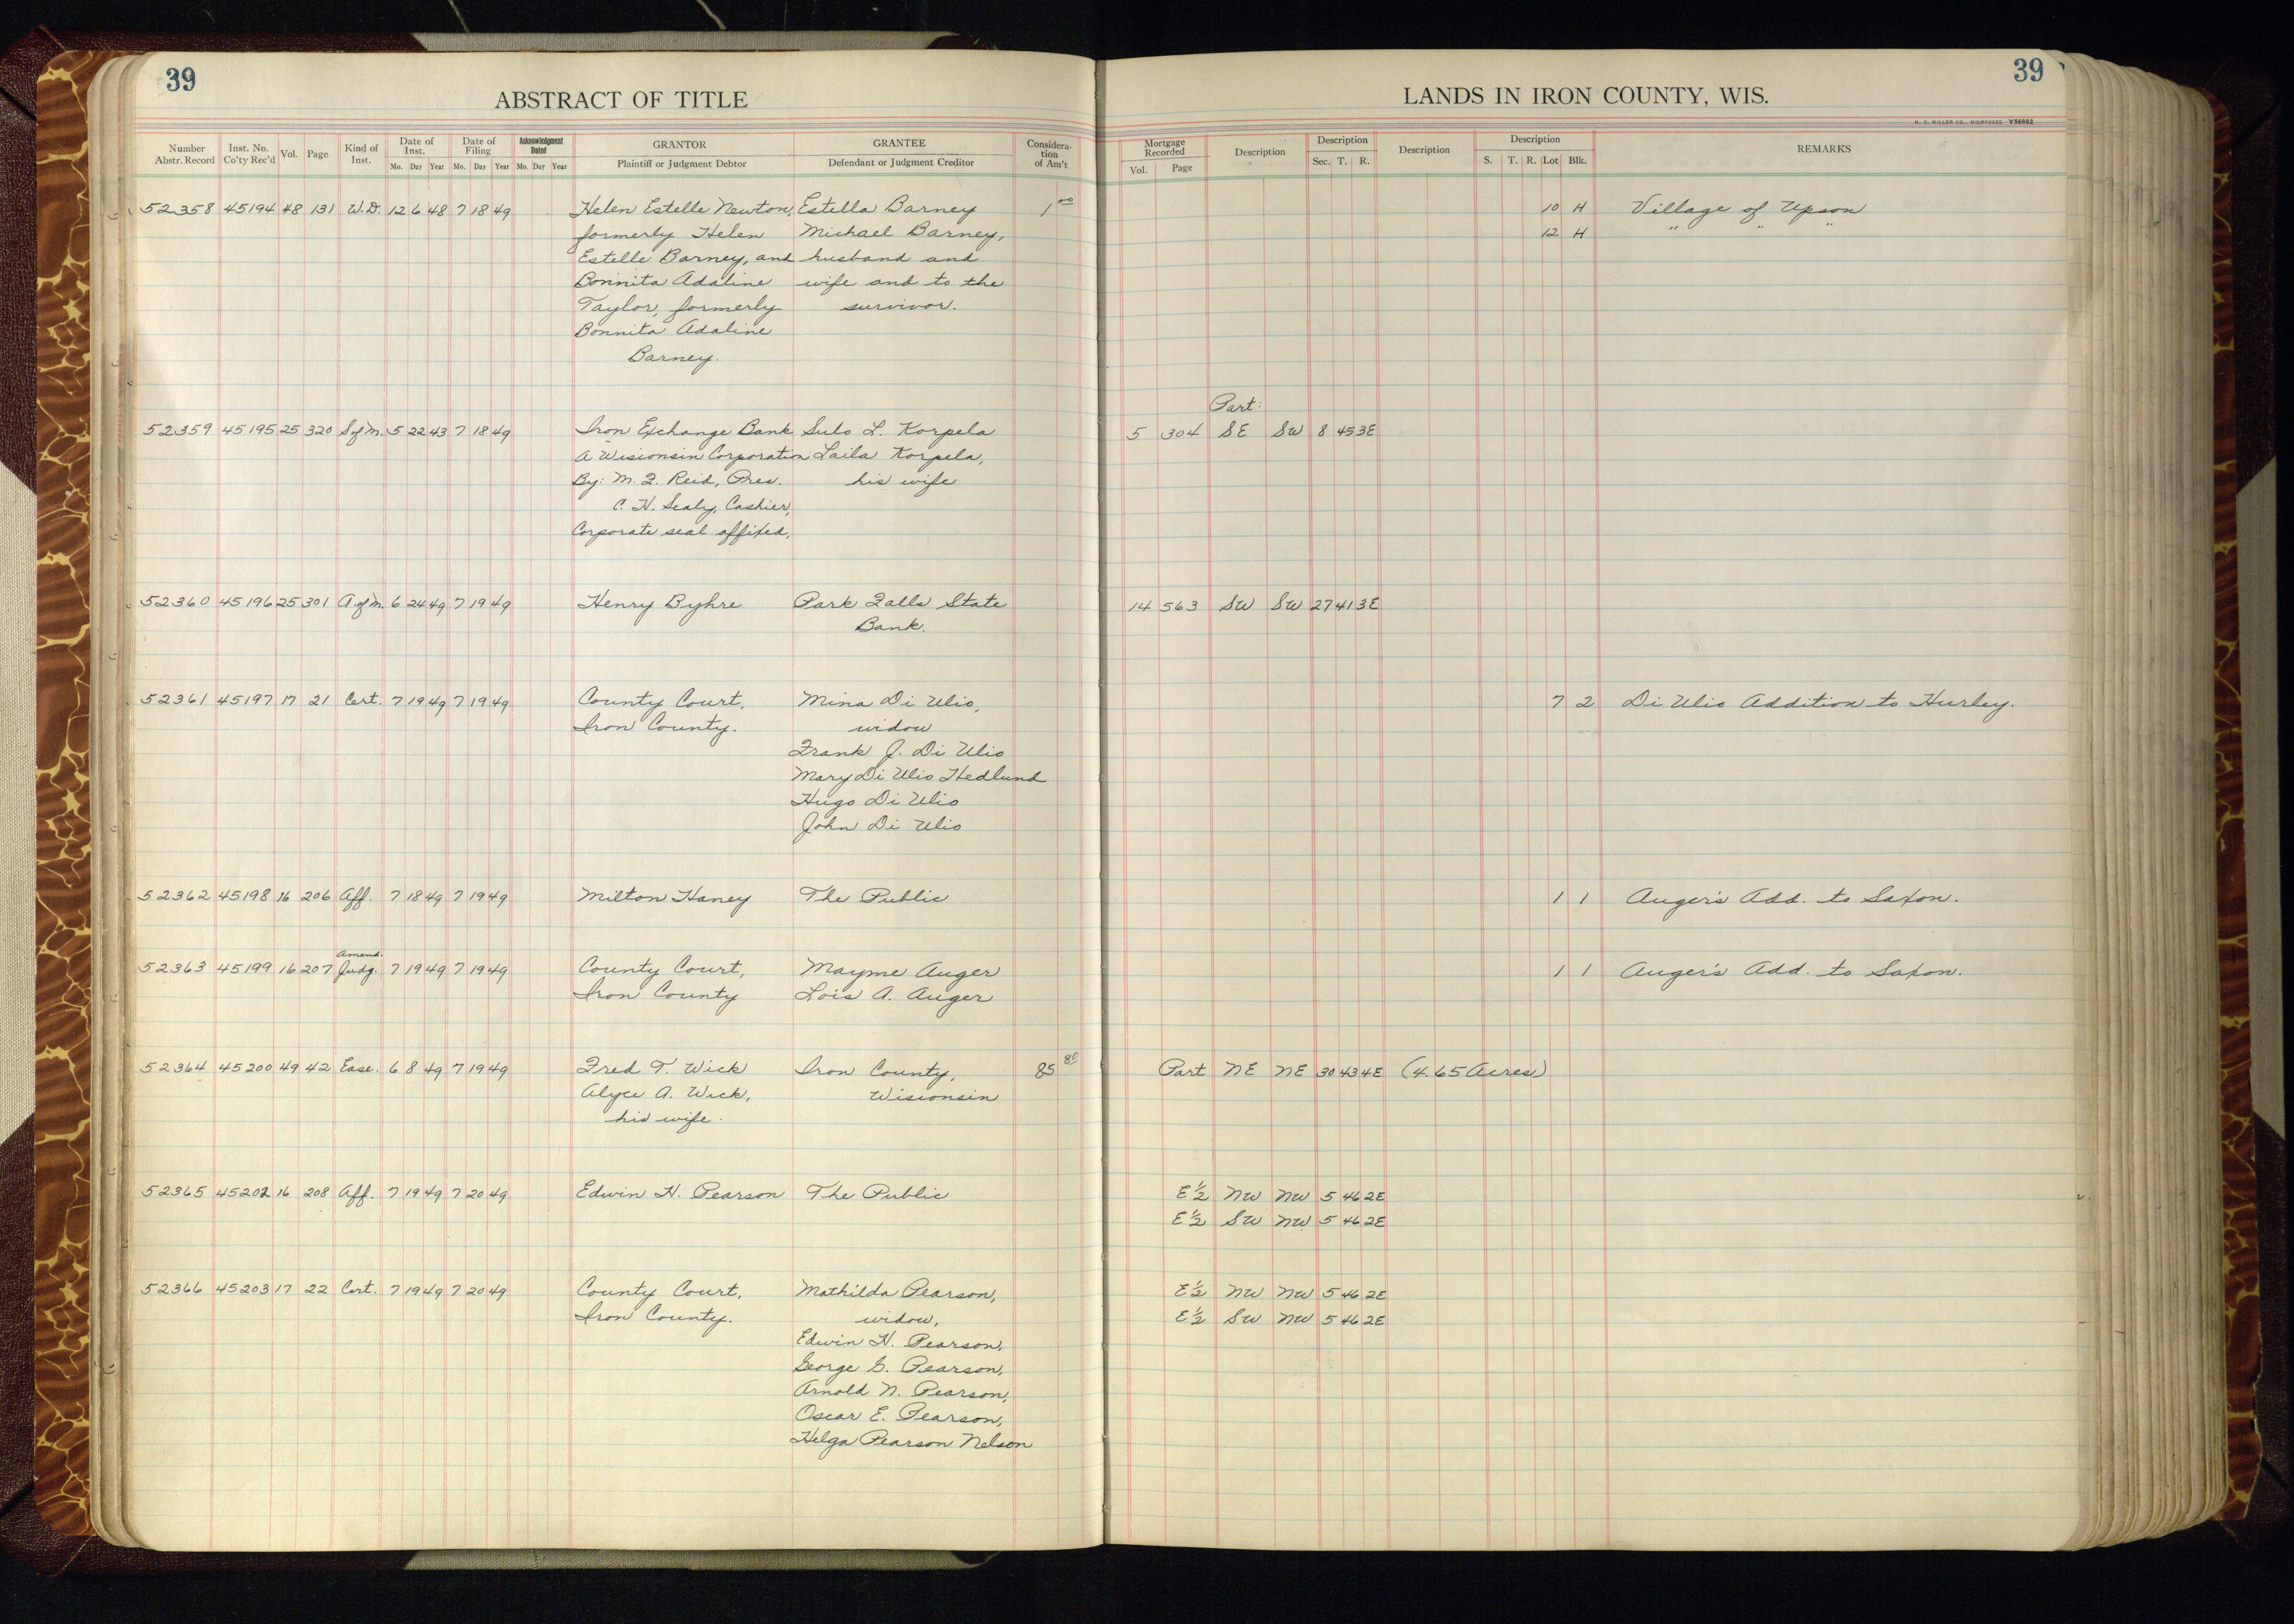 39
39
ABSTRACT OF TITLE
LANDS IN IRON COUNTY, WIS.
H. C. MILLER CO., MILWAUKEE Y56882
Number Abstr. Record Inst. No. Co'ty Rec'd Vol. Page Kind of Inst. Date of Inst. Mo. Day Year Date of Filing Mo. Day Year Acknowledgment Dated Mo. Day Year GRANTOR Plaintiff or Judgment Debtor GRANTEE Defendant or Judgment Creditor Consideration of Am't
Mortgage Recorded Vol. Page Description Description Sec. T. R. Description Description S. T. R. Lot Blk. REMARKS
52358 45194 48 131 W.D. 12 6 48 7 18 49 Helen Estelle Newton, Estella Barney 1 00 10 H Village of Upson
formerly Helen Michael Barney, 12 H " " "
Estelle Barney, and husband and
Bonnita Adaline wife and to the
Taylor, formerly survivor.
Bonnita Adaline
Barney.
Part:
52359 45195 25 320 S of M. 5 22 43 7 18 49 Iron Exchange Bank Sulo L. Korpela 5 304 SE SW 8 45 3E
A Wisconsin Corporation Laila Korpela,
By: M. J. Reid, Pres. his wife
C. H. Sealy, Cashier,
Corporate seal affixed,
52360 45196 25 301 A of M. 6 24 49 7 19 49 Henry Byhre Park Falls State 14 563 SW SW 27 41 3E
Bank.
52361 45197 17 21 Cert. 7 19 49 7 19 49 County Court, Mina Di Ulio, 7 2 Di Ulio Addition to Hurley.
Iron County. widow
Frank J. Di Ulio
Mary Di Ulio Hedlund
Hugo Di Ulio
John Di Ulio
52362 45198 16 206 Aff. 7 18 49 7 19 49 Milton Haney The Public 1 1 Auger's Add. to Saxon.
Amend.
52363 45199 16 207 Judg. 7 19 49 7 19 49 County Court, Mayme Auger 1 1 Auger's Add. to Saxon.
Iron County Lois A. Auger
52364 45200 49 42 Ease. 6 8 49 7 19 49 Fred T. Wick Iron County, 85 80 Part NE NE 30 43 4E (4.65 Acres)
Alyce A. Wick, Wisconsin
his wife.
52365 45202 16 208 Aff. 7 19 49 7 20 49 Edwin H. Pearson The Public E½ NW NW 5 46 2E
E½ SW NW 5 46 2E
52366 45203 17 22 Cert. 7 19 49 7 20 49 County Court, Mathilda Pearson, E½ NW NW 5 46 2E
Iron County. widow, E½ SW NW 5 46 2E
Edwin H. Pearson,
George G. Pearson,
Arnold N. Pearson,
Oscar E. Pearson,
Helga Pearson Nelson